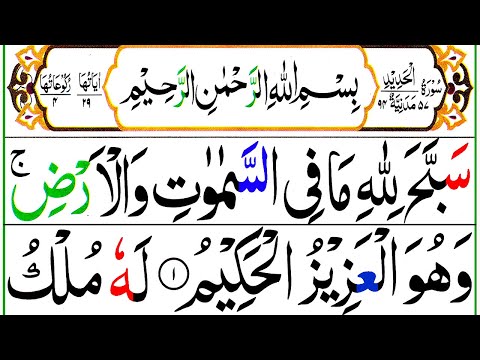 سُوْرَةُ الْحَدِيْدِ
٥٧ مَدَنِيَّةٌ ٩٤
بِسْمِ اللهِ الرَّحْمٰنِ الرَّحِيْمِ
اٰيَاتُهَا ٢٩
رُكُوْعَاتُهَا ٤
سَبَّحَ لِلّٰهِ مَا فِي السَّمٰوٰتِ وَالْاَرْضِ ج
وَهُوَ الْعَزِيْزُ الْحَكِيْمُ ١ لَهٗ مُلْكُ